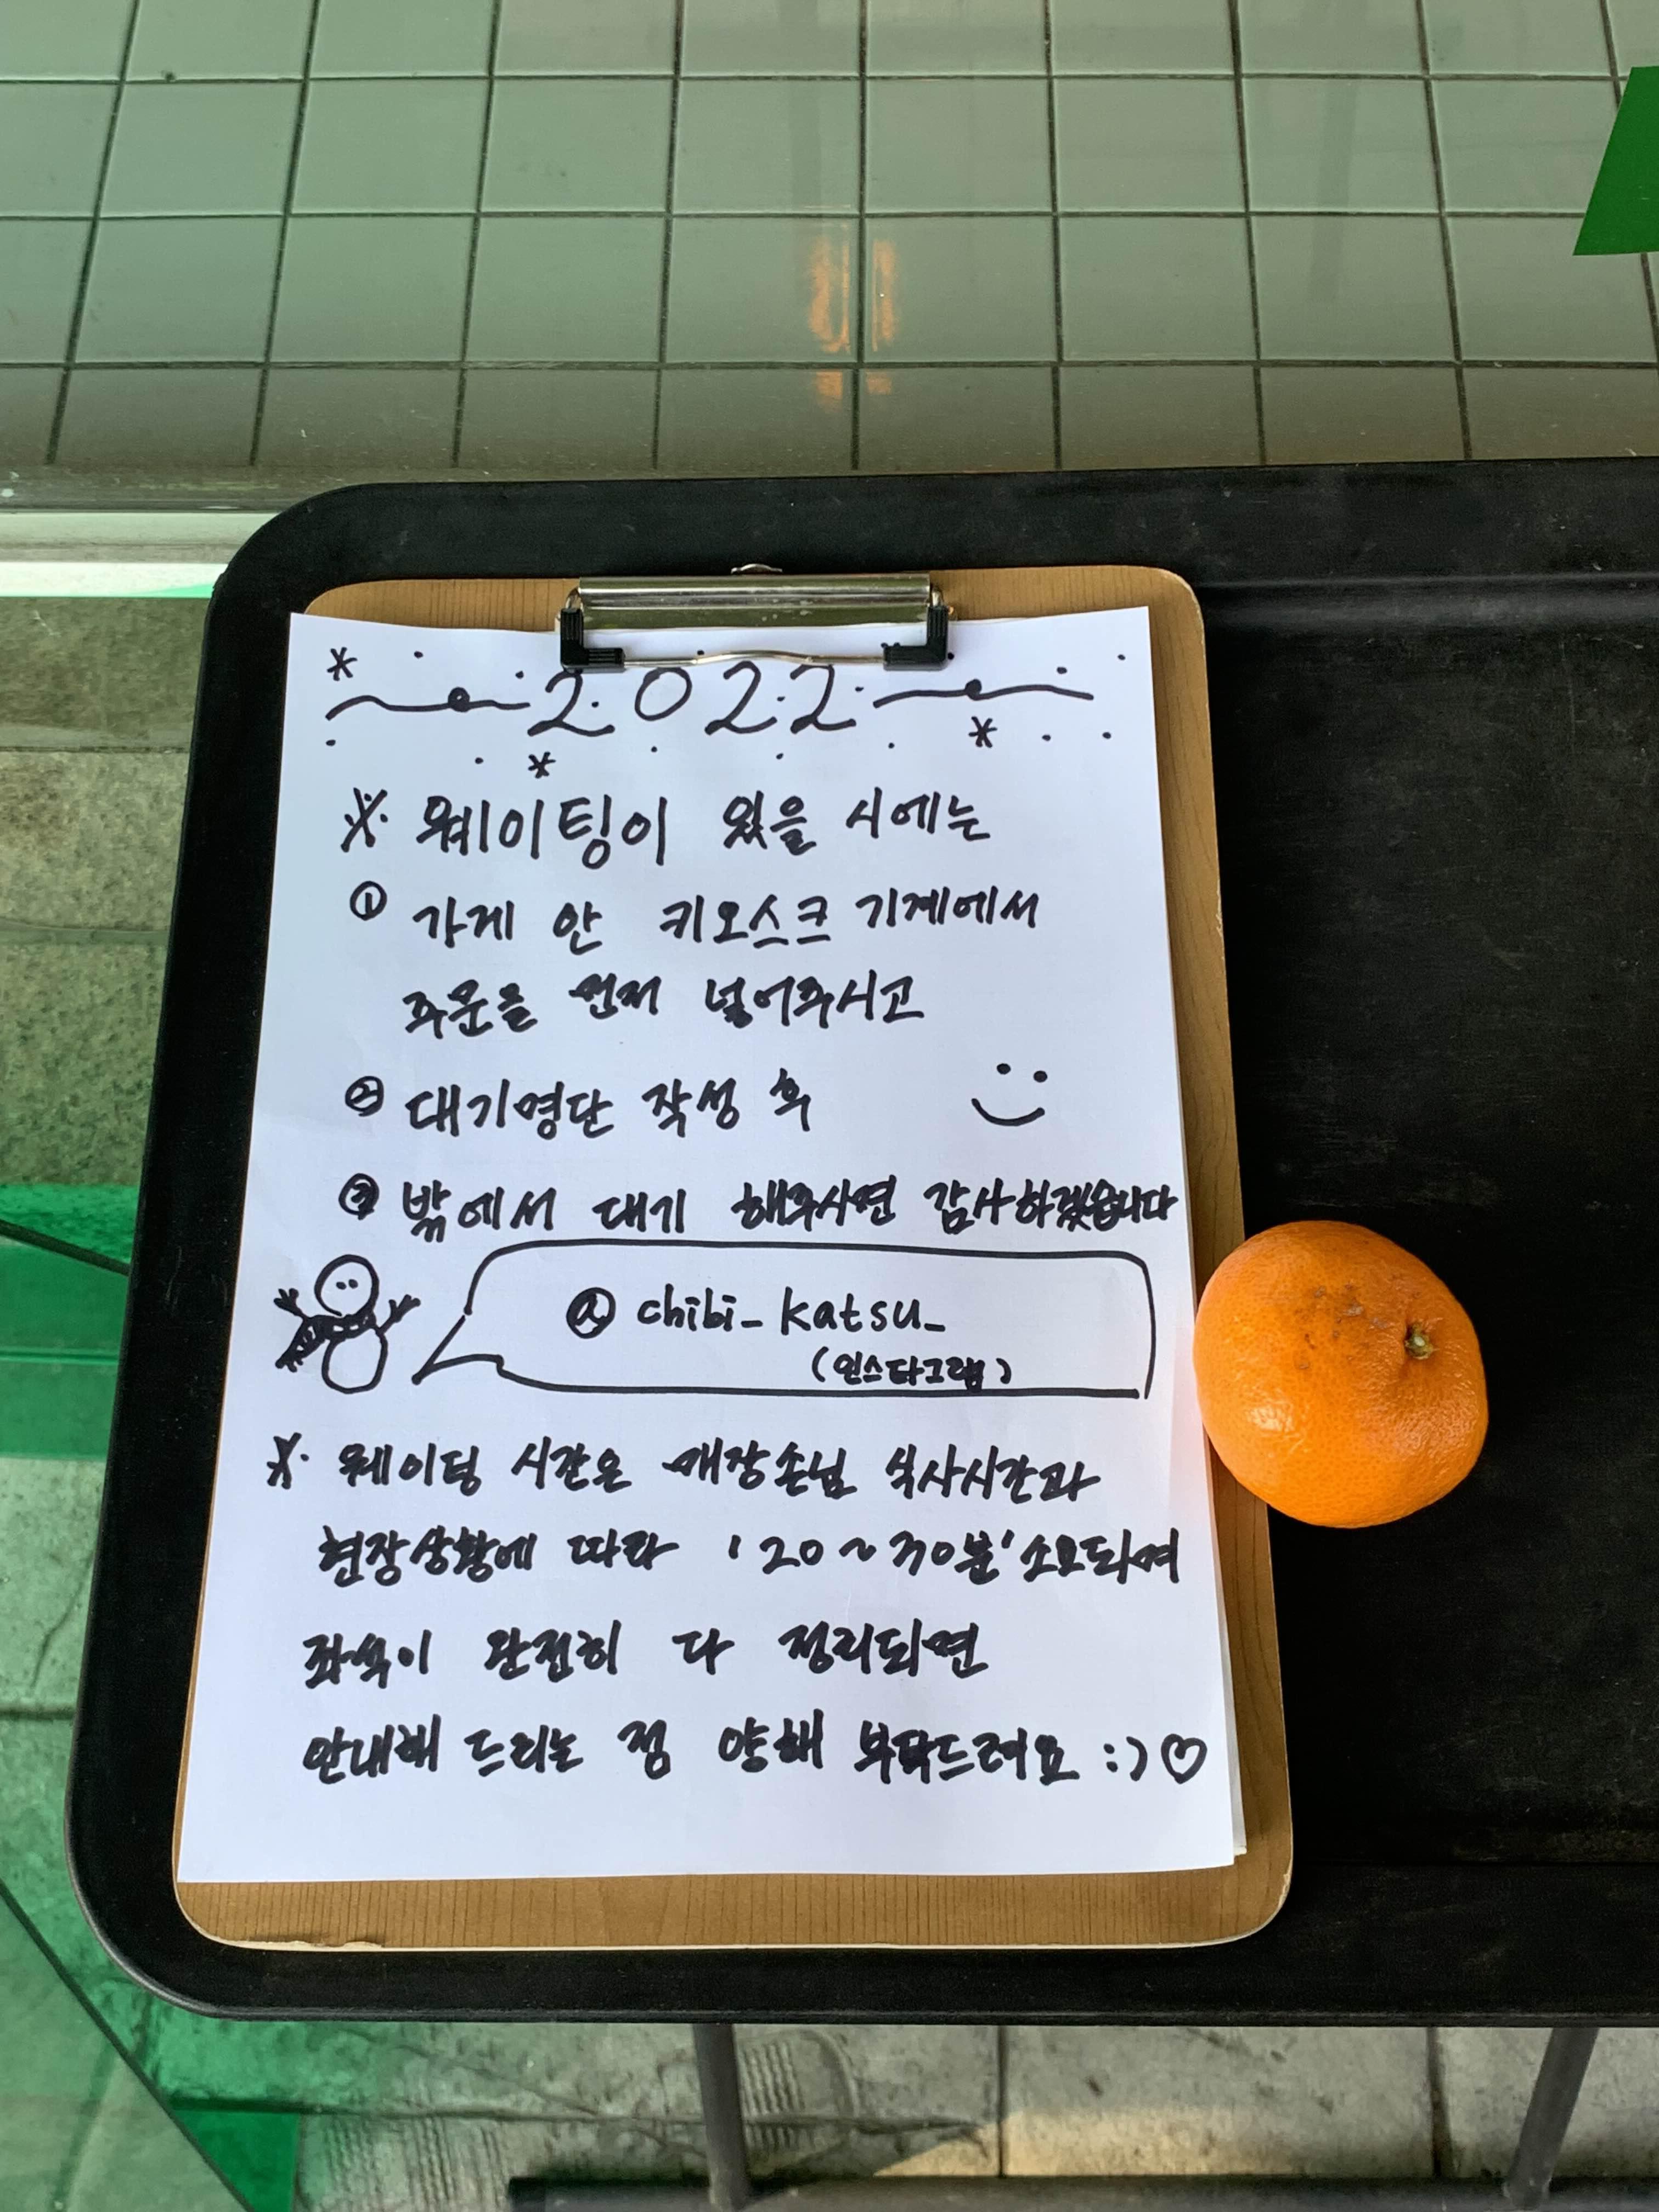 2022
※ 웨이팅이 있을 시에는
① 가게 안 키오스크 기계에서
주문을 먼저 넣어주시고
② 대기명단 작성 후
③ 밖에서 대기 해주시면 감사하겠습니다
@ chibi_katsu_
(인스타그램)
※ 웨이팅 시간은 매장손님 식사시간과
현장상황에 따라 '20~30분' 소요되며
좌석이 완전히 다 정리되면
안내해 드리는 점 양해 부탁드려요 :) ♡